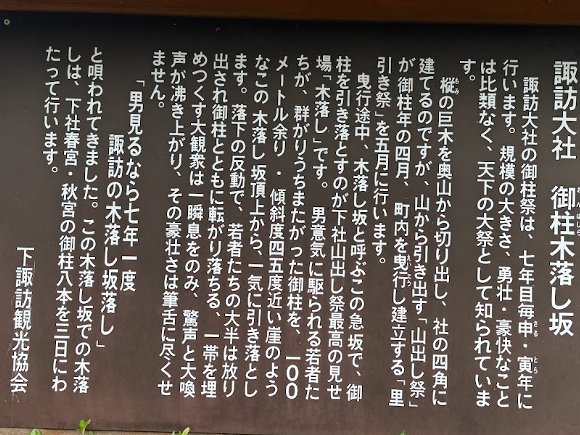 諏訪大社　御柱木落し坂
諏訪大社の御柱祭は、七年目毎申・寅年に
行います。規模の大きさ、勇壮・豪快なこと
は比類なく、天下の大祭として知られていま
す。
樅の巨木を奥山から切り出し、社の四角に
建てるのですが、山から引き出す「山出し祭」
が御柱年の四月、町内を曳行し建立する「里
引き祭」を五月に行います。
曳行途中、木落し坂と呼ぶこの急坂で、御
柱を引き落とすのが下社山出し祭最高の見せ
場「木落し」です。男意気に駆られる若者た
ちが、群がりうちまたがった御柱を、一〇〇
メートル余り・傾斜度四五度近い崖のよう
なこの木落し坂頂上から、一気に引き落とし
ます。落下の反動で、若者たちの大半は放り
出され御柱とともに転がり落ちる、一帯を埋
めつくす大観衆は一瞬息をのみ、驚声と大喚
声が沸き上がり、その豪壮さは筆舌に尽くせ
ません。
「男見るなら七年一度
諏訪の木落し坂落し」
と唄われてきました。この木落し坂での木落
しは、下社春宮・秋宮の御柱八本を三日にわ
たって行います。
下諏訪観光協会